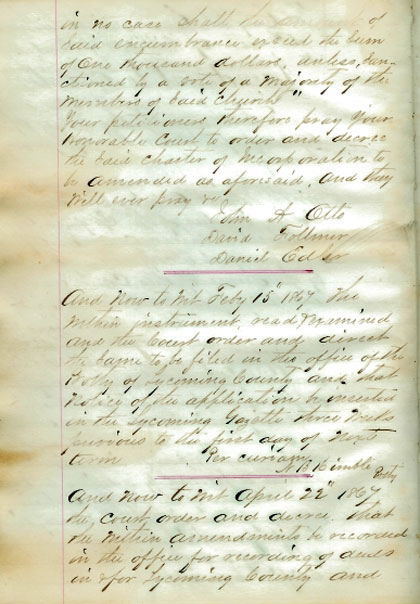 in no case shall the amount of
said encumbrance exceed the sum
of One thousand dollars, unless, sanc-
tioned by a vote of a majority of the
members of said church"
Your petitioners therefore pray your
Honorable Court to order and decree
the said charter of incorporation to
be amended as aforesaid. And they
will ever pray &c
John A Otto
David Follmer
Daniel
And now to wit Feby 15" 1867 The
within instrument read & examined
and the Court order and direct
the same to be filed in the office of the
Prothy of Lycoming County and that
notice of the application be inserted
in the Lycoming Gazette three weeks
previous to the first day of next
term Per curiam
Prothy
And now to wit April 22" 1867
the court order and decree that
the within amendments be recorded
in the office for recording of deeds
in & for Lycoming County and